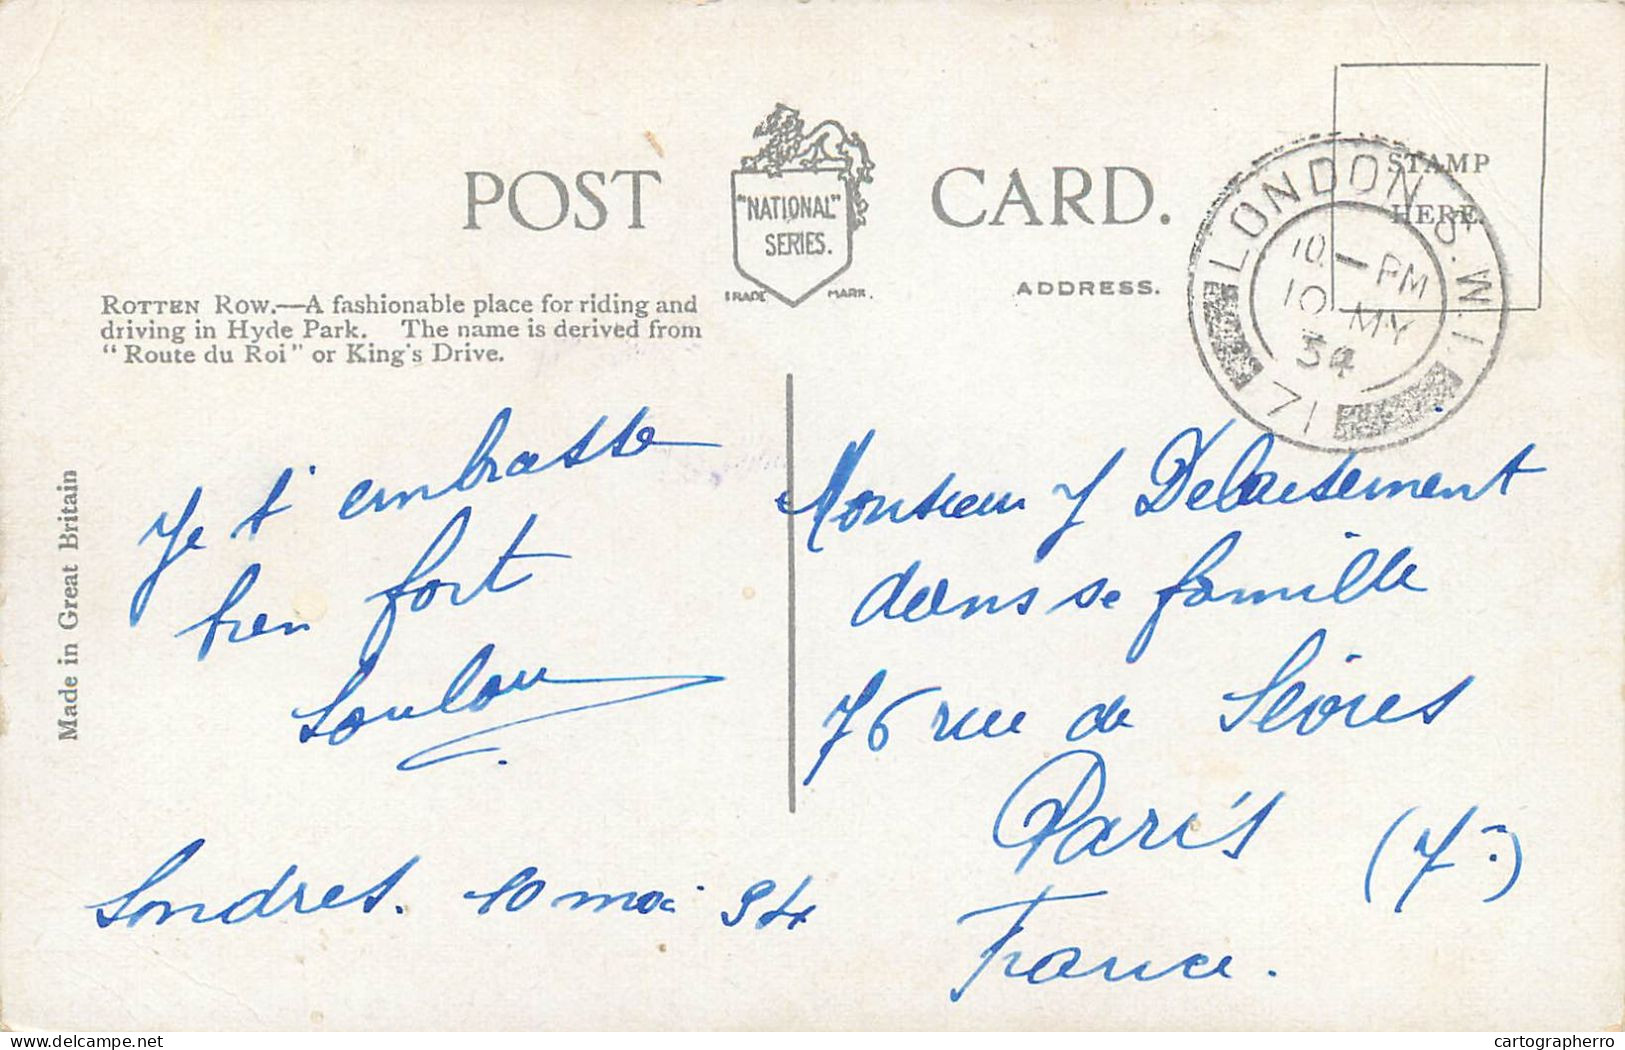 POST CARD.
"NATIONAL"
SERIES.
TRADE MARK.
STAMP
HERE.
LONDON S.W.1.
10 - PM
10 MY
34
71
ADDRESS.
ROTTEN ROW.—A fashionable place for riding and
driving in Hyde Park. The name is derived from
"Route du Roi" or King's Drive.
Made in Great Britain
Je t'embrasse
bien fort
Loulou
Londres. 10 mai 34
Monsieur J Delaisement
dans sa famille
76 rue de Sèvres
Paris (7e)
France.
cartographerro